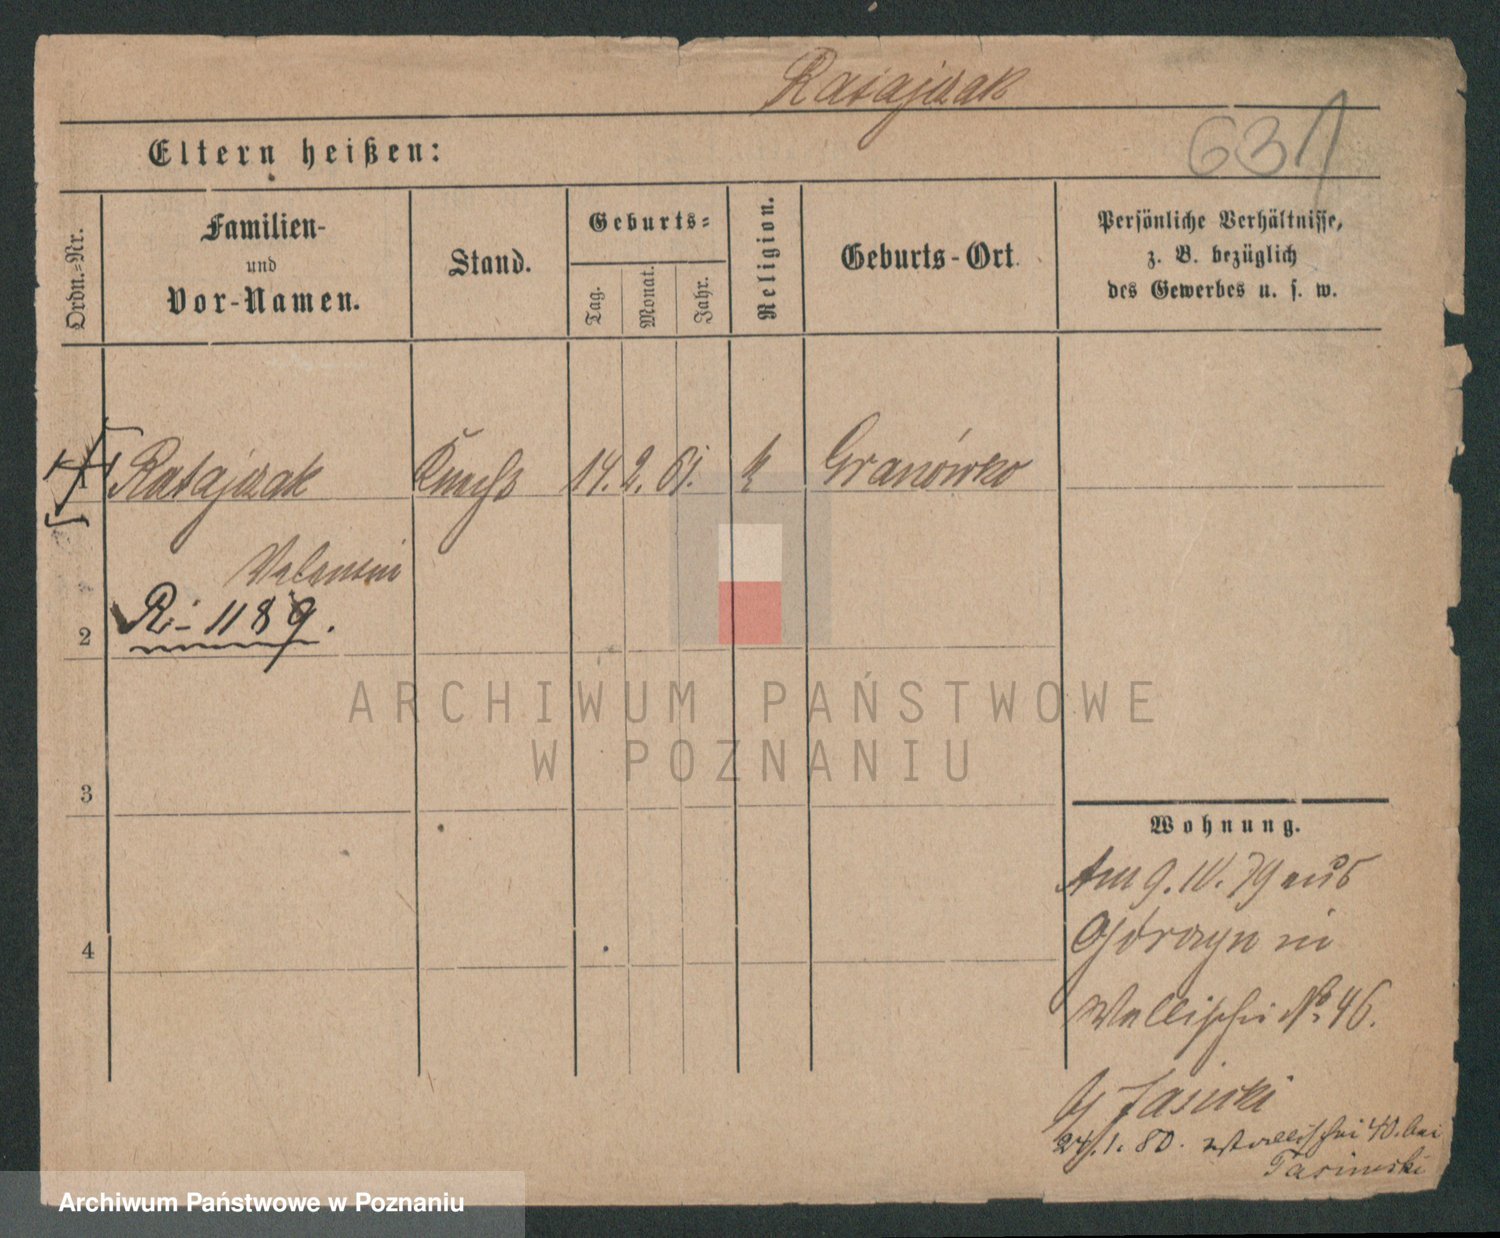 Ratajczak
631
Eltern heißen:
Ordn.=Nr.
Familien-
und
Vor-Namen.
Stand.
Geburts=
Tag.
Monat.
Jahr.
Religion.
Geburts-Ort.
Persönliche Verhältnisse,
z. B. bezüglich
des Gewerbes u. s. w.
1 Ratajczak Knecht 14. 2. 61. k Granówko
Valentin
R. 1189.
2
ARCHIWUM PAŃSTWOWE
W POZNANIU
3
Wohnung.
Am 9. 10. 79 aus
Górczyn in
4
Wallischei No. 46.
24. 1. 80. Wallischei 40. bei
Archiwum Państwowe w Poznaniu